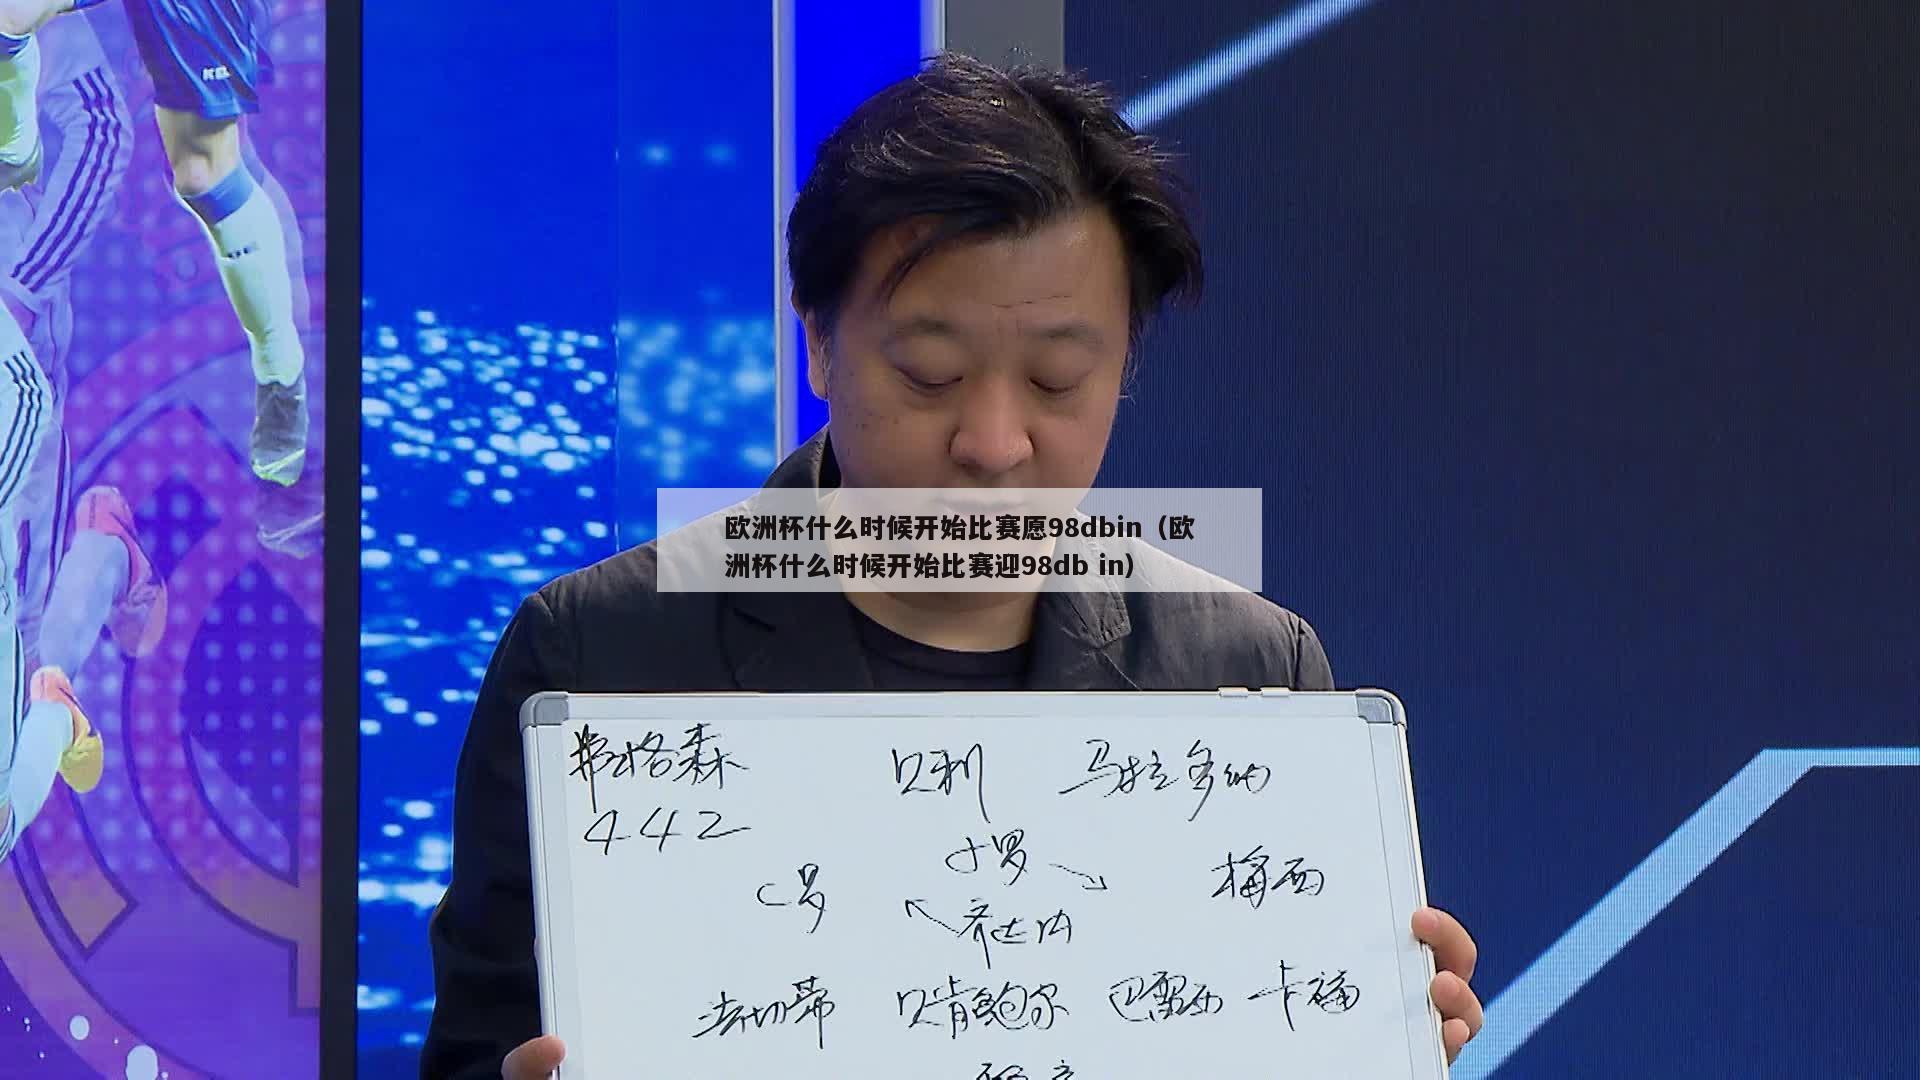 欧洲杯什么时候开始比赛愿98dbin（欧
洲杯什么时候开始比赛迎98db in）
弗格森 贝利 马拉多纳
442
C罗 小罗 梅西
齐达内
法切蒂 贝肯鲍尔 巴雷西 卡福